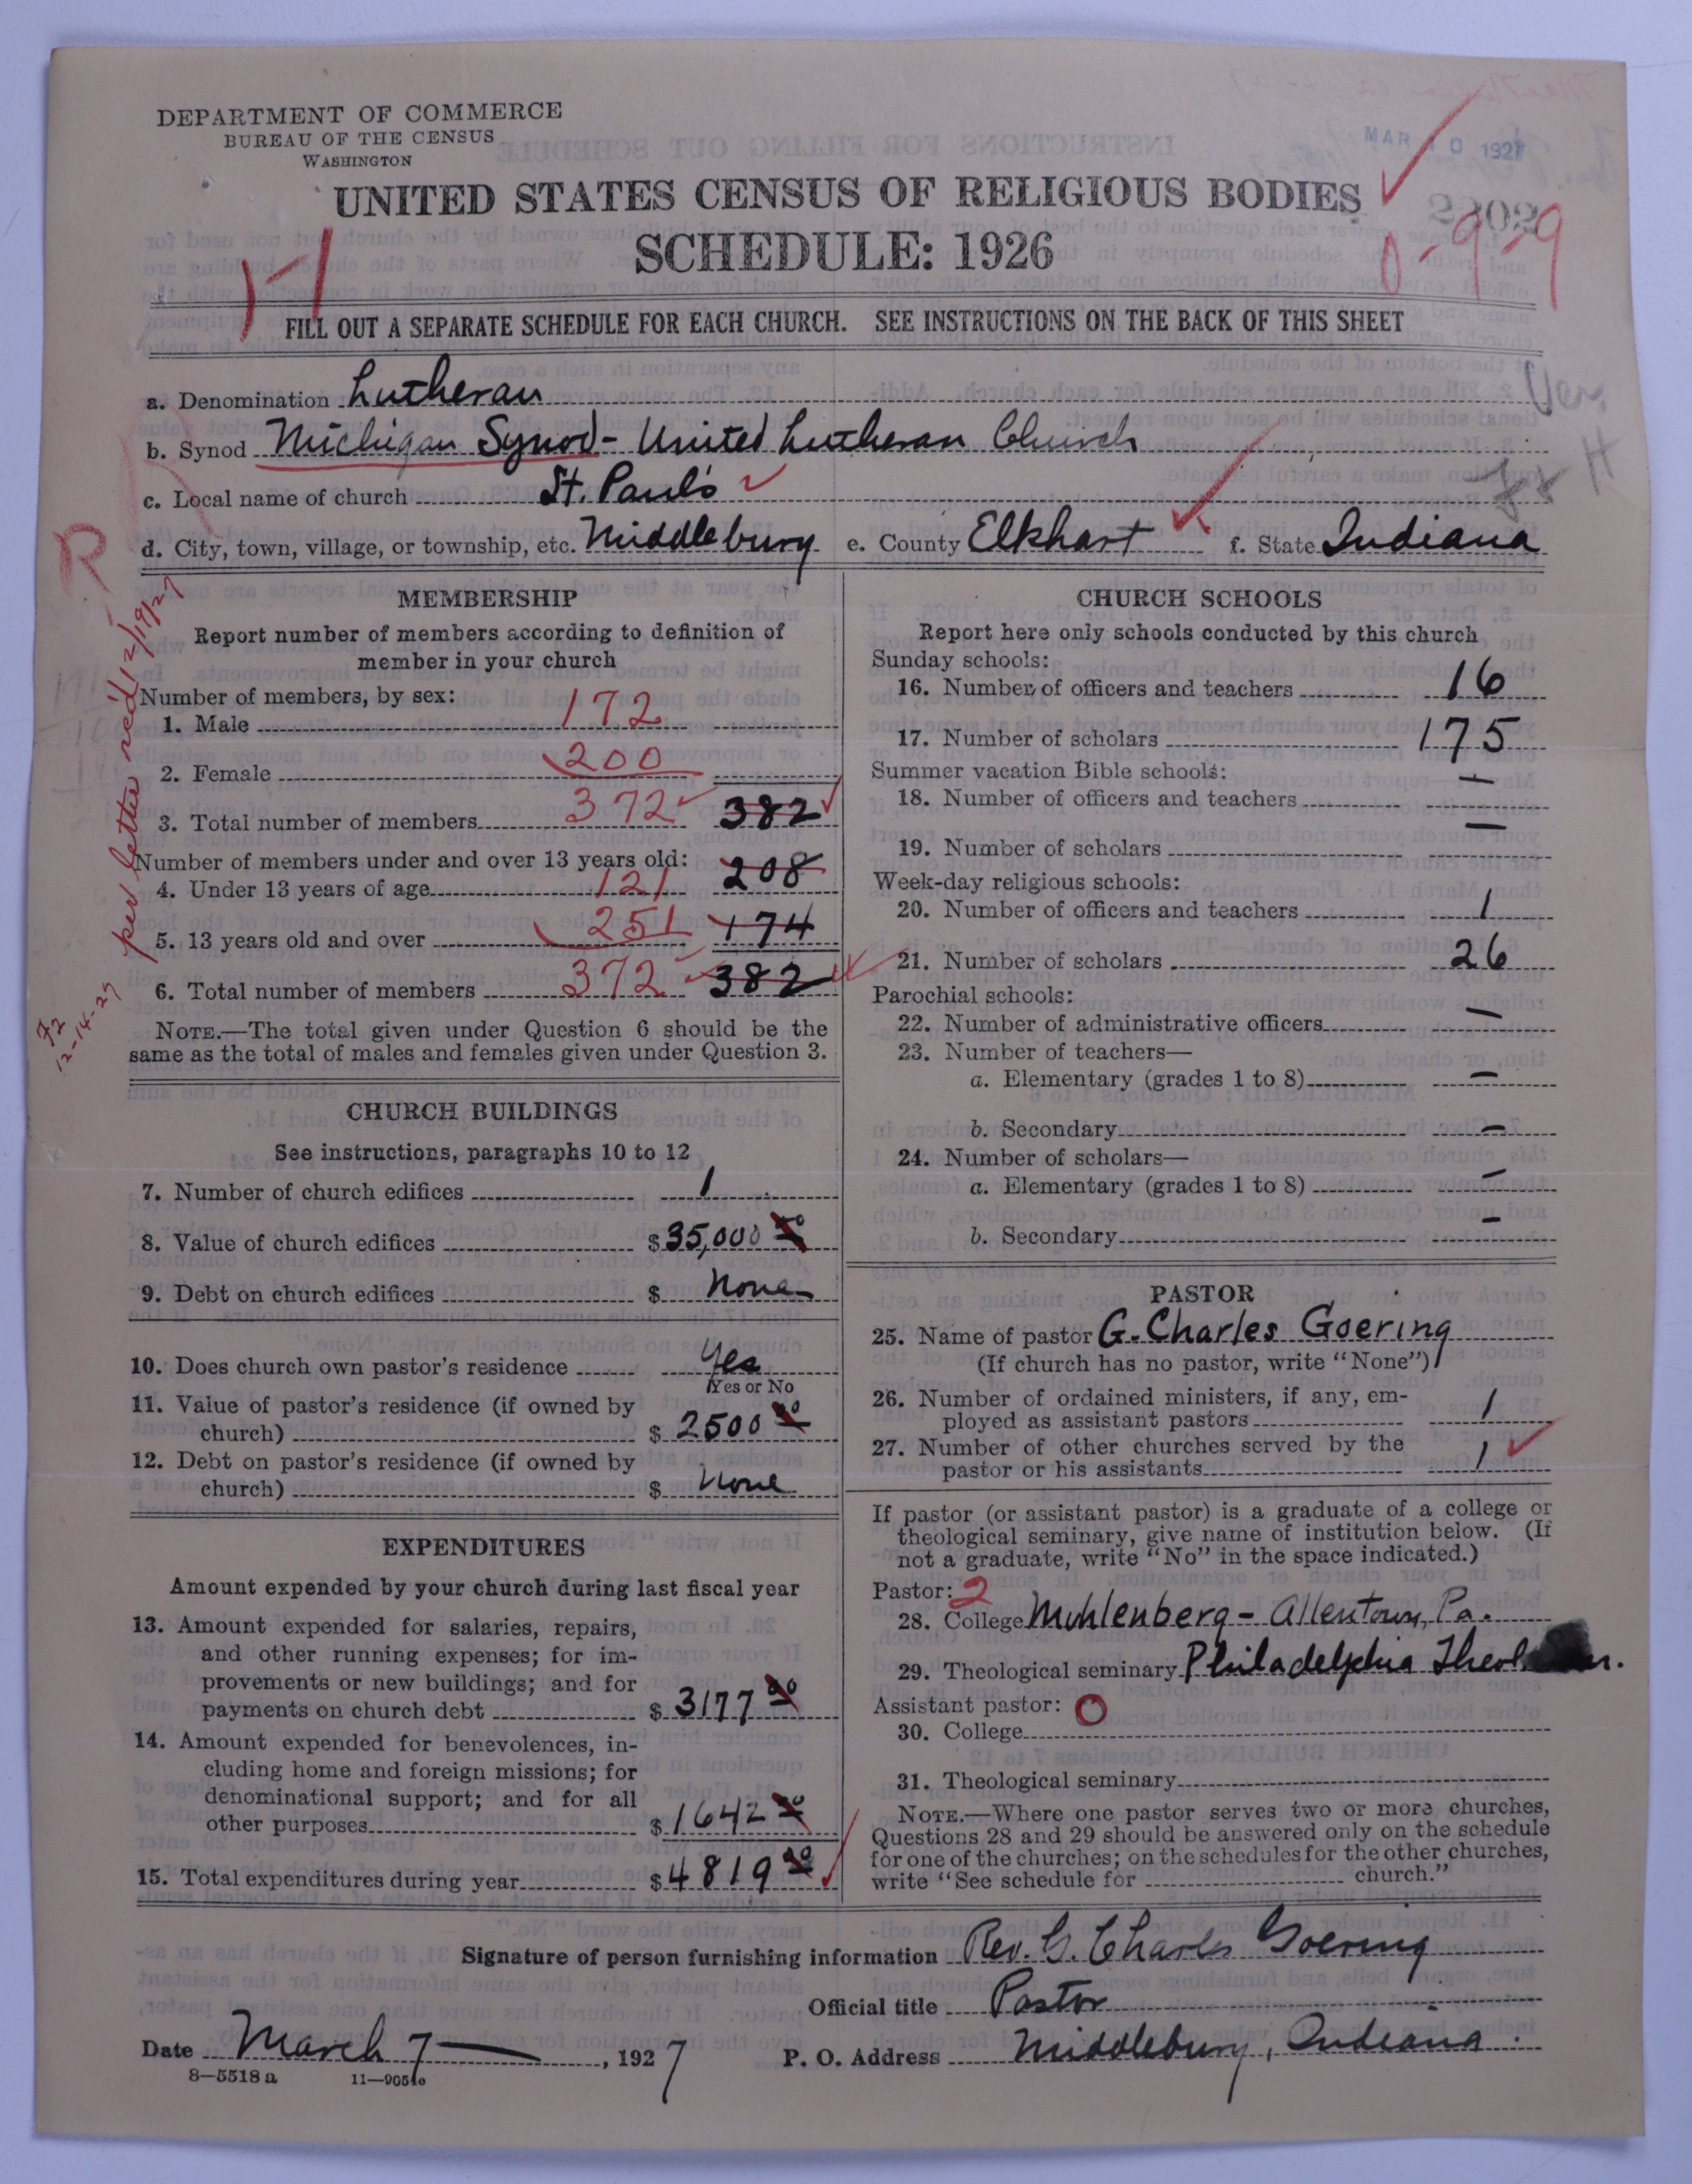 DEPARTMENT OF COMMERCE
BUREAU OF THE CENSUS
WASHINGTON
MAR 10 1927
UNITED STATES CENSUS OF RELIGIOUS BODIES
SCHEDULE: 1926
2202
0-9-9
FILL OUT A SEPARATE SCHEDULE FOR EACH CHURCH. SEE INSTRUCTIONS ON THE BACK OF THIS SHEET
a. Denomination Lutheran
Ver.
b. Synod Michigan Synod - United Lutheran Church
c. Local name of church St. Paul's
d. City, town, village, or township, etc. Middlebury e. County Elkhart f. State Indiana
R
per letter rec'd 12/19/27
12-14-27
MEMBERSHIP
Report number of members according to definition of
member in your church
Number of members, by sex:
1. Male 172
2. Female 200
3. Total number of members 372 382
Number of members under and over 13 years old:
4. Under 13 years of age 121 208
5. 13 years old and over 251 174
6. Total number of members 372 382
NOTE.—The total given under Question 6 should be the
same as the total of males and females given under Question 3.
CHURCH BUILDINGS
See instructions, paragraphs 10 to 12
7. Number of church edifices 1
8. Value of church edifices $ 35,000 00
9. Debt on church edifices $ None
10. Does church own pastor's residence Yes
Yes or No
11. Value of pastor's residence (if owned by
church) $ 2500 00
12. Debt on pastor's residence (if owned by
church) $ None
EXPENDITURES
Amount expended by your church during last fiscal year
13. Amount expended for salaries, repairs,
and other running expenses; for im-
provements or new buildings; and for
payments on church debt $ 3177 00
14. Amount expended for benevolences, in-
cluding home and foreign missions; for
denominational support; and for all
other purposes $ 1642 00
15. Total expenditures during year $ 4819 00
CHURCH SCHOOLS
Report here only schools conducted by this church
Sunday schools:
16. Number of officers and teachers 16
17. Number of scholars 175
Summer vacation Bible schools:
18. Number of officers and teachers —
19. Number of scholars —
Week-day religious schools:
20. Number of officers and teachers 1
21. Number of scholars 26
Parochial schools:
22. Number of administrative officers —
23. Number of teachers—
a. Elementary (grades 1 to 8) —
b. Secondary —
24. Number of scholars—
a. Elementary (grades 1 to 8) —
b. Secondary —
PASTOR
25. Name of pastor G. Charles Goering
(If church has no pastor, write "None")
26. Number of ordained ministers, if any, em-
ployed as assistant pastors 1
27. Number of other churches served by the
pastor or his assistants 1
If pastor (or assistant pastor) is a graduate of a college or
theological seminary, give name of institution below. (If
not a graduate, write "No" in the space indicated.)
Pastor: 2
28. College Muhlenberg - Allentown, Pa.
29. Theological seminary Philadelphia Theol.
Assistant pastor: 0
30. College
31. Theological seminary
NOTE.—Where one pastor serves two or more churches,
Questions 28 and 29 should be answered only on the schedule
for one of the churches; on the schedules for the other churches,
write "See schedule for church."
Signature of person furnishing information Rev. G. Charles Goering
Official title Pastor
Date March 7, 1927 P. O. Address Middlebury, Indiana.
8—5518 a 11—9051a